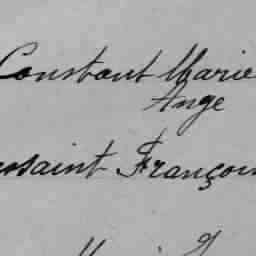 Constant Marie
Ange
ssaint François